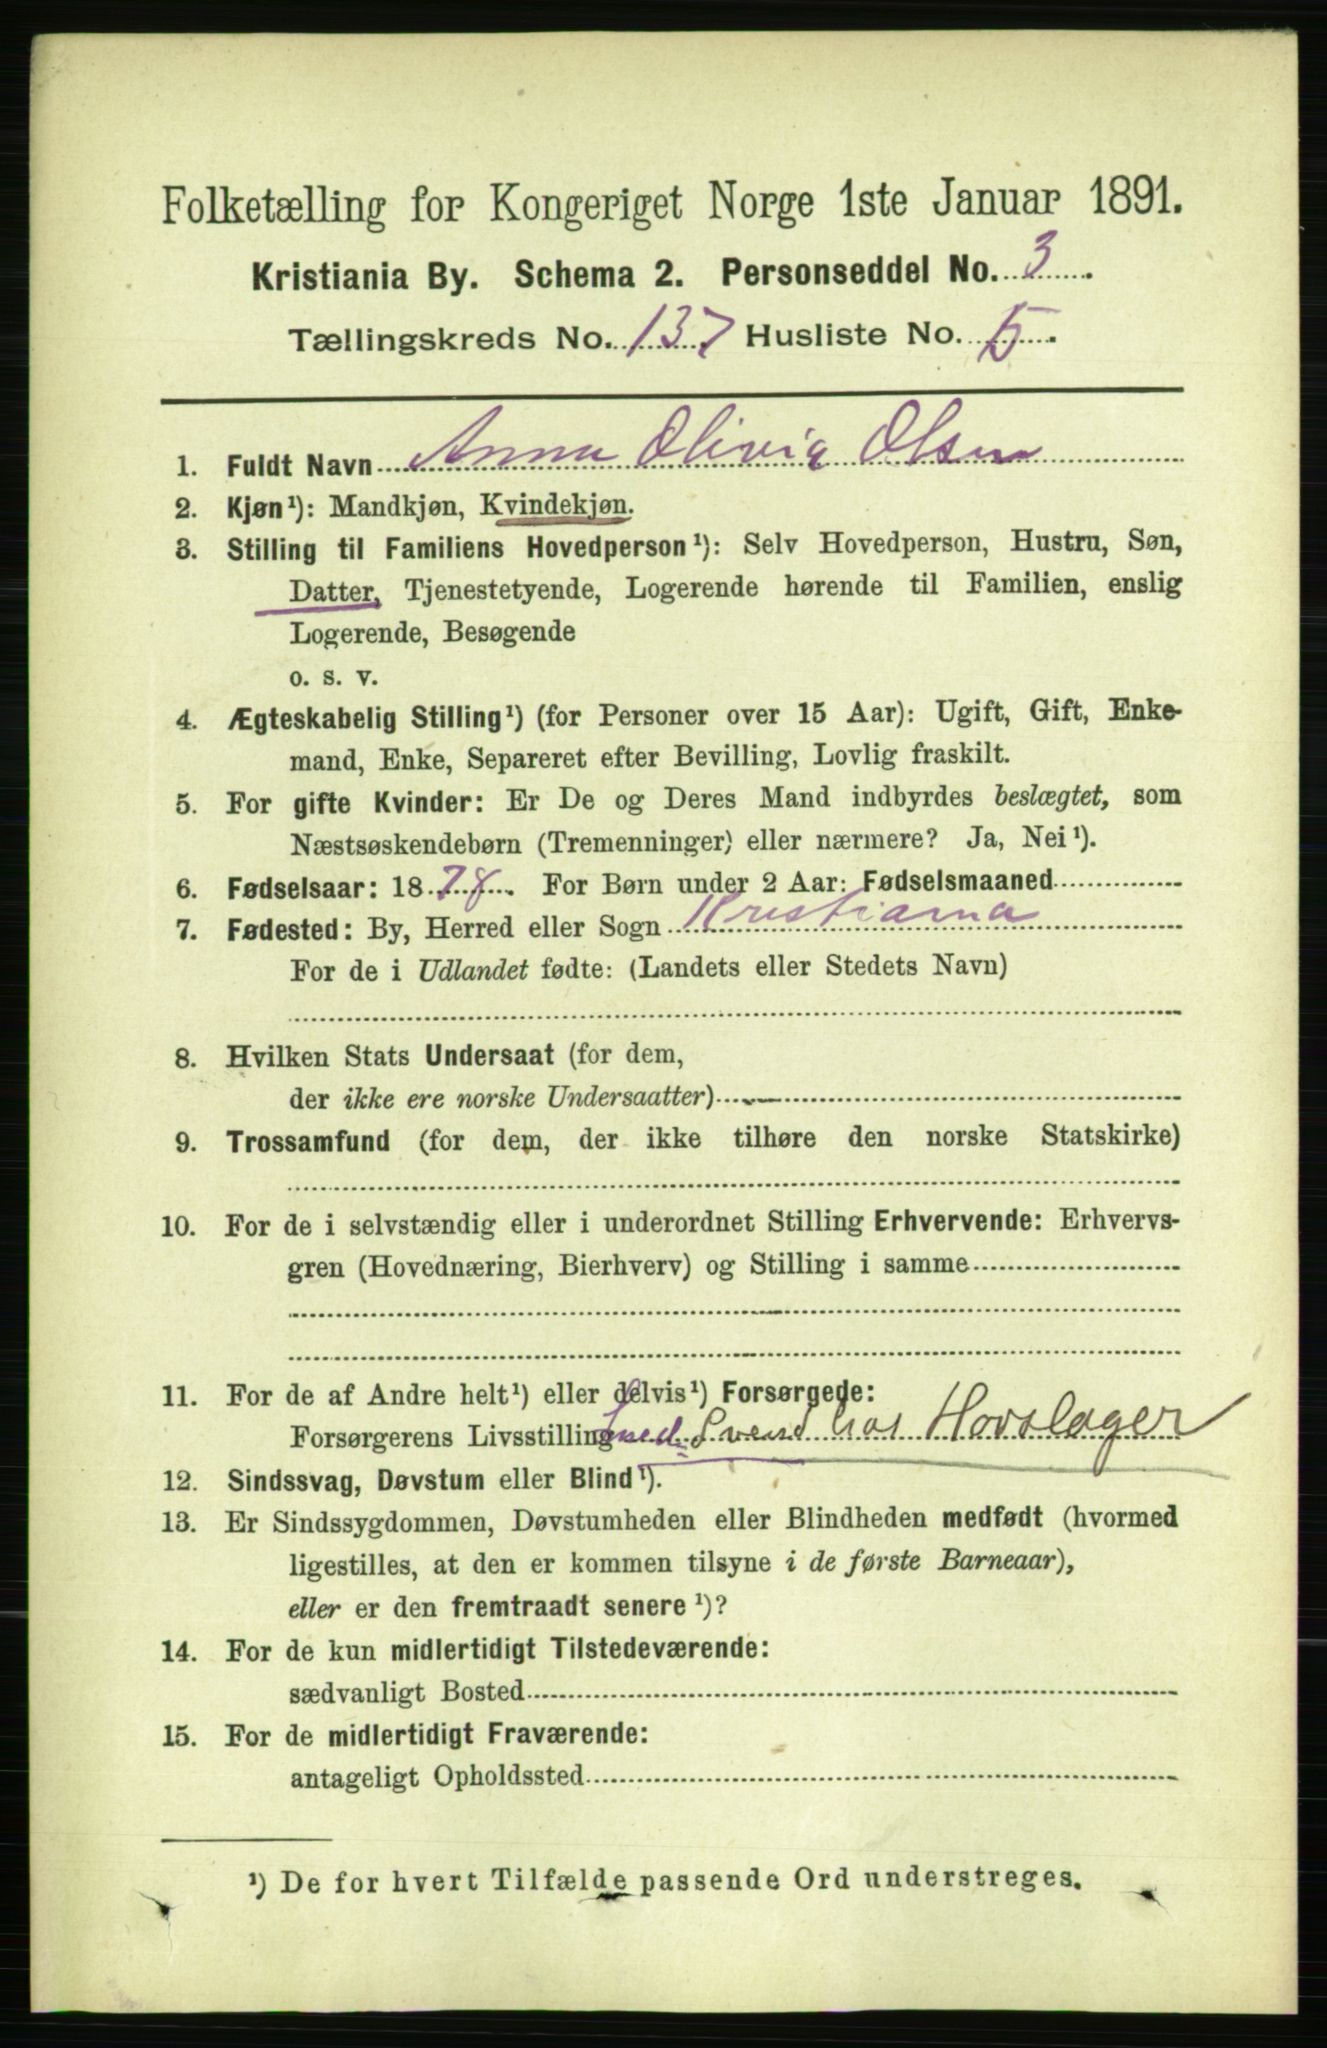 Folketælling for Kongeriget Norge 1ste Januar 1891.
Kristiania By. Schema 2. Personseddel No. 3.
Tællingskreds No. 137 Husliste No. 5.
1. Fuldt Navn Anna Olivia Olsen
2. Kjøn¹): Mandkjøn, Kvindekjøn.
3. Stilling til Familiens Hovedperson¹): Selv Hovedperson, Hustru, Søn,
Datter, Tjenestetyende, Logerende hørende til Familien, enslig
Logerende, Besøgende
o. s. v.
4. Ægteskabelig Stilling¹) (for Personer over 15 Aar): Ugift, Gift, Enke-
mand, Enke, Separeret efter Bevilling, Lovlig fraskilt.
5. For gifte Kvinder: Er De og Deres Mand indbyrdes beslægtet, som
Næstsøskendebørn (Tremenninger) eller nærmere? Ja, Nei¹).
6. Fødselsaar: 1878. For Børn under 2 Aar: Fødselsmaaned
7. Fødested: By, Herred eller Sogn Kristiania
For de i Udlandet fødte: (Landets eller Stedets Navn)
8. Hvilken Stats Undersaat (for dem,
der ikke ere norske Undersaatter)
9. Trossamfund (for dem, der ikke tilhøre den norske Statskirke)
10. For de i selvstændig eller i underordnet Stilling Erhvervende: Erhvervs-
gren (Hovednæring, Bierhverv) og Stilling i samme
11. For de af Andre helt¹) eller delvis¹) Forsørgede:
Forsørgerens Livsstilling Smed Svend hos Hovslager
12. Sindssvag, Døvstum eller Blind¹).
13. Er Sindssygdommen, Døvstumheden eller Blindheden medfødt (hvormed
ligestilles, at den er kommen tilsyne i de første Barneaar),
eller er den fremtraadt senere¹)?
14. For de kun midlertidigt Tilstedeværende:
sædvanligt Bosted
15. For de midlertidigt Fraværende:
antageligt Opholdssted
¹) De for hvert Tilfælde passende Ord understreges.